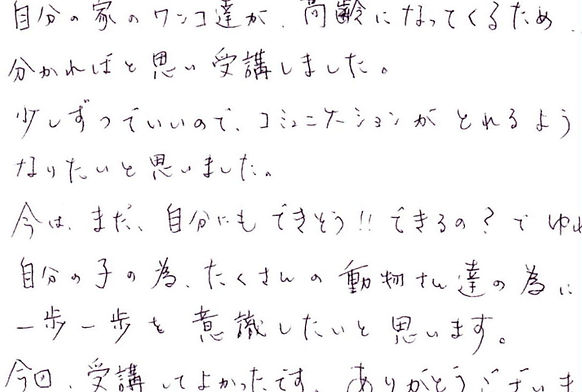 自分の家のワンコ達が、高齢になってくるため、
分かればと思い受講しました。
少しずつでいいので、コミュニケーションがとれるよう
なりたいと思いました。
今は、まだ、自分にもできそう!!できるの?で
自分の子の為、たくさんの動物さん達の為に
一歩一歩を意識したいと思います。
今回、受講してよかったです。ありがとうございま